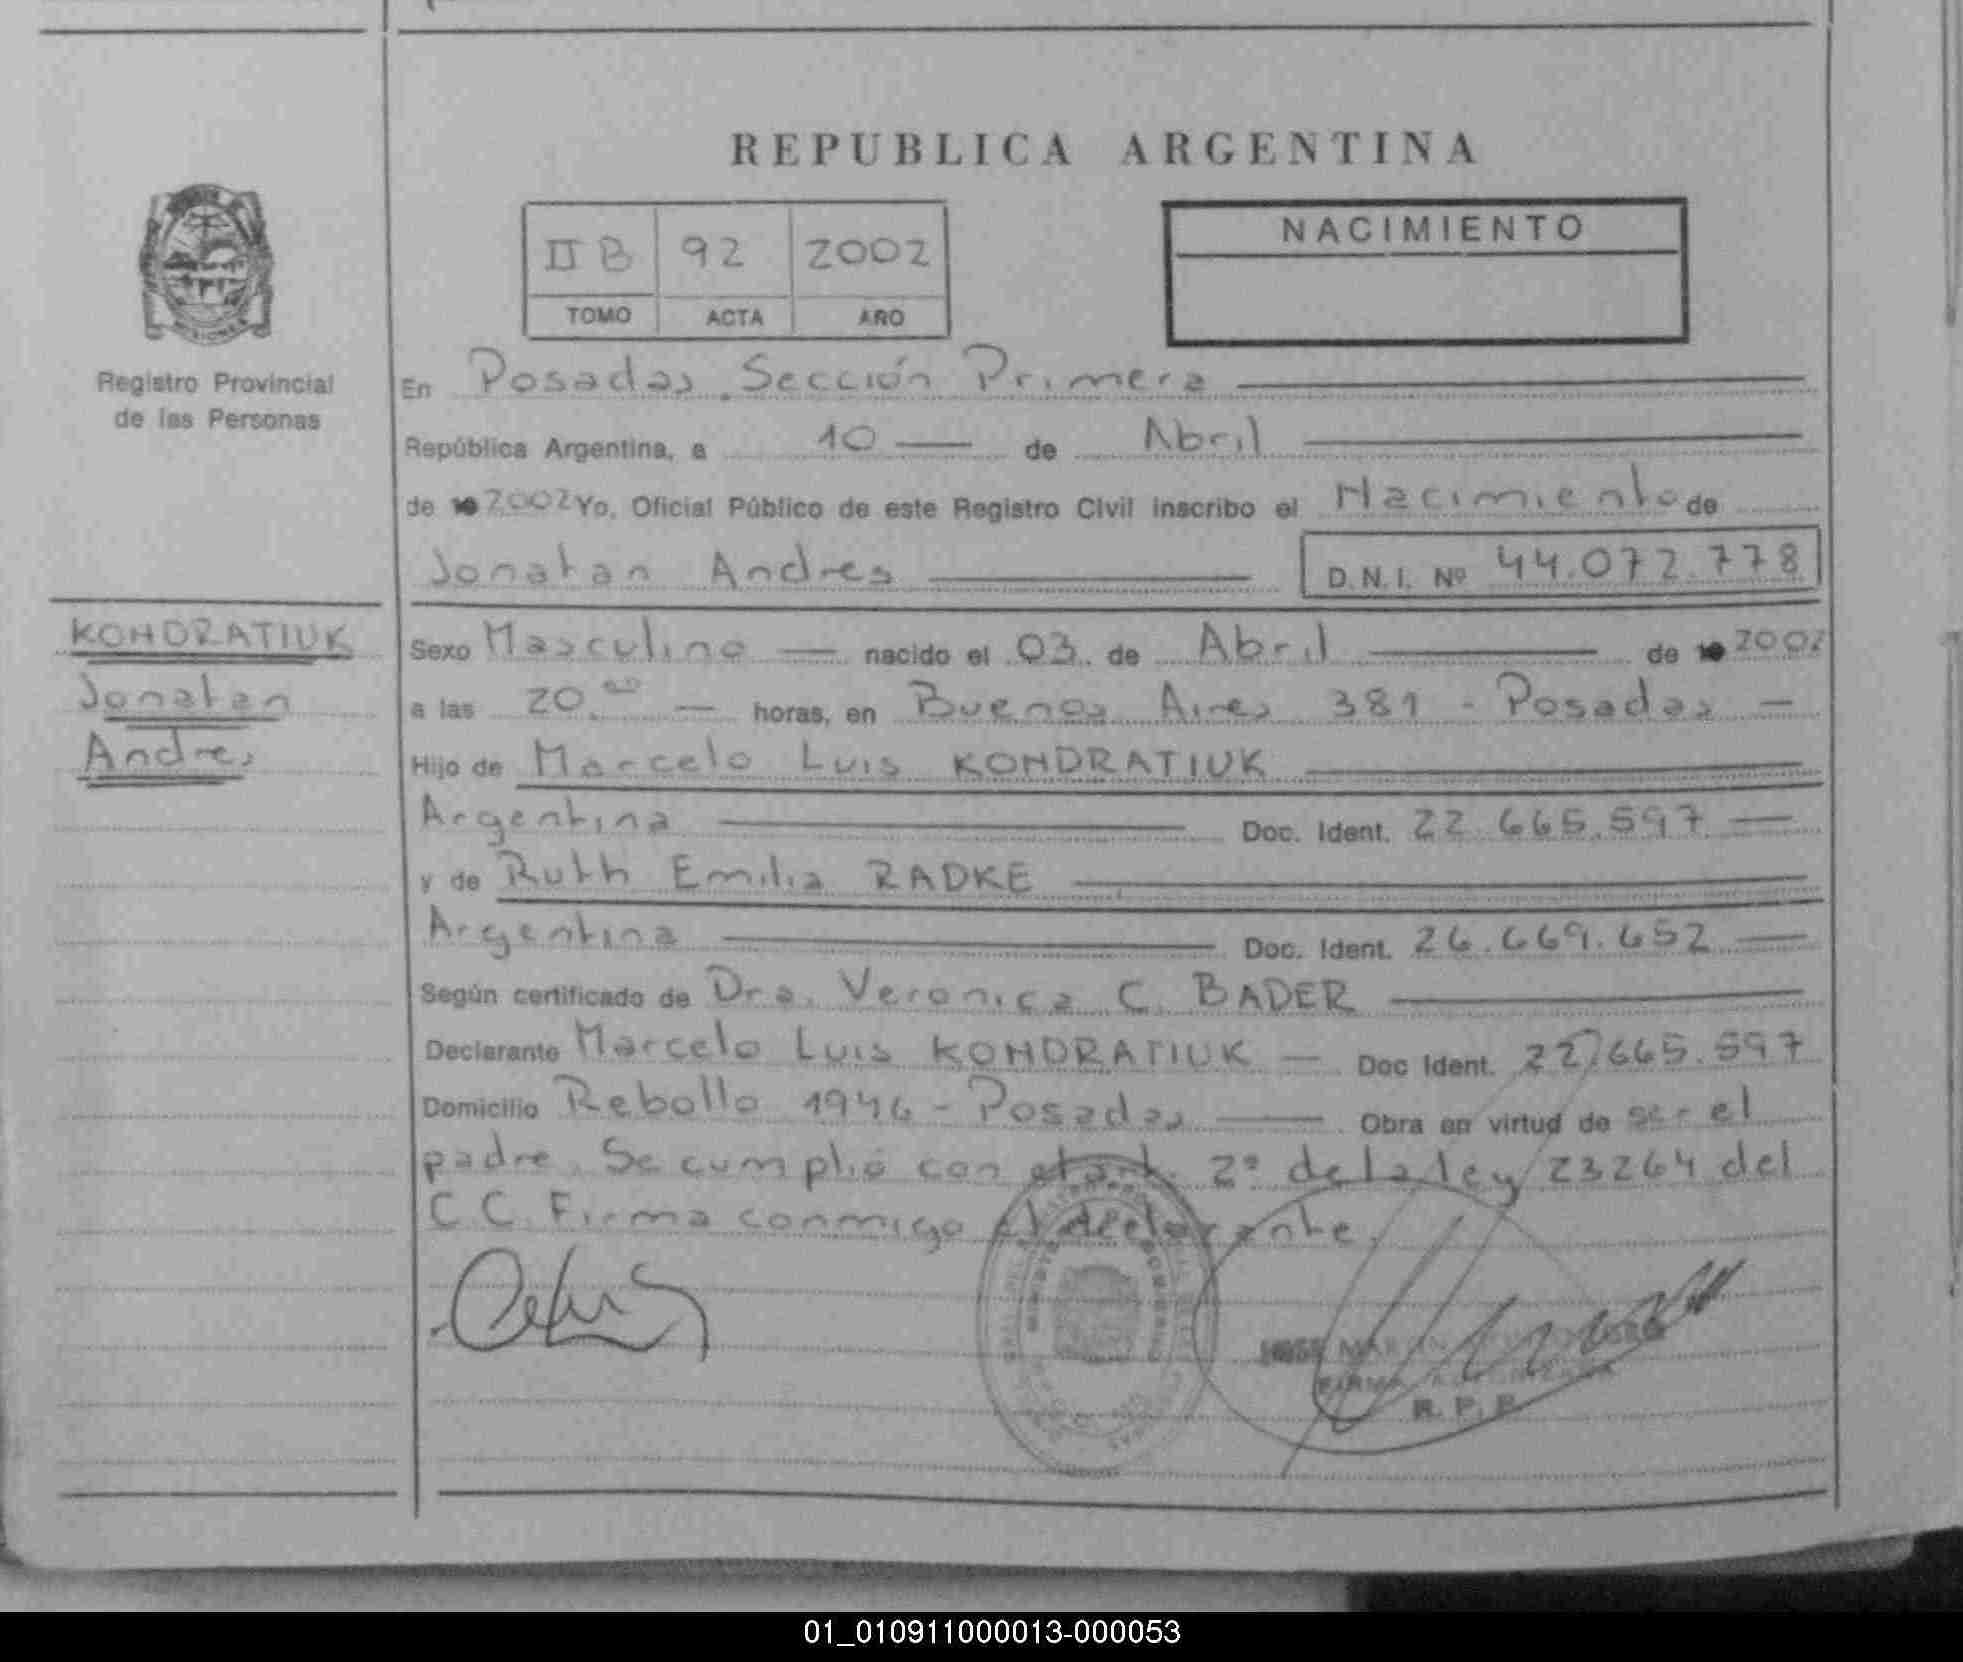 REPUBLICA ARGENTINA
II B 92 2002
TOMO ACTA AÑO
NACIMIENTO
Registro Provincial
de las Personas
En Posadas, Sección Primera
República Argentina, a 10 de Abril
de 19 2002 Yo, Oficial Público de este Registro Civil inscribo el Nacimiento de
Jonatan Andres D.N.I. Nº 44.072.778
KONDRATIUK
Jonatan
Andres
Sexo Masculino nacido el 03 de Abril de 19 2002
a las 20.00 horas, en Buenos Aires 381 - Posadas
Hijo de Marcelo Luis KONDRATIUK
Argentina Doc. Ident. 22.665.597
y de Ruth Emilia RADKE
Argentina Doc. Ident. 26.669.652
Según certificado de Dra. Veronica C. BADER
Declarante Marcelo Luis KONDRATIUK Doc Ident. 22.665.597
Domicilio Rebollo 1946 - Posadas Obra en virtud de ser el
padre. Se cumplió con el art. 2º de la ley 23264 del
C.C. Firma conmigo el declarante.
R. P. P.
01_010911000013-000053